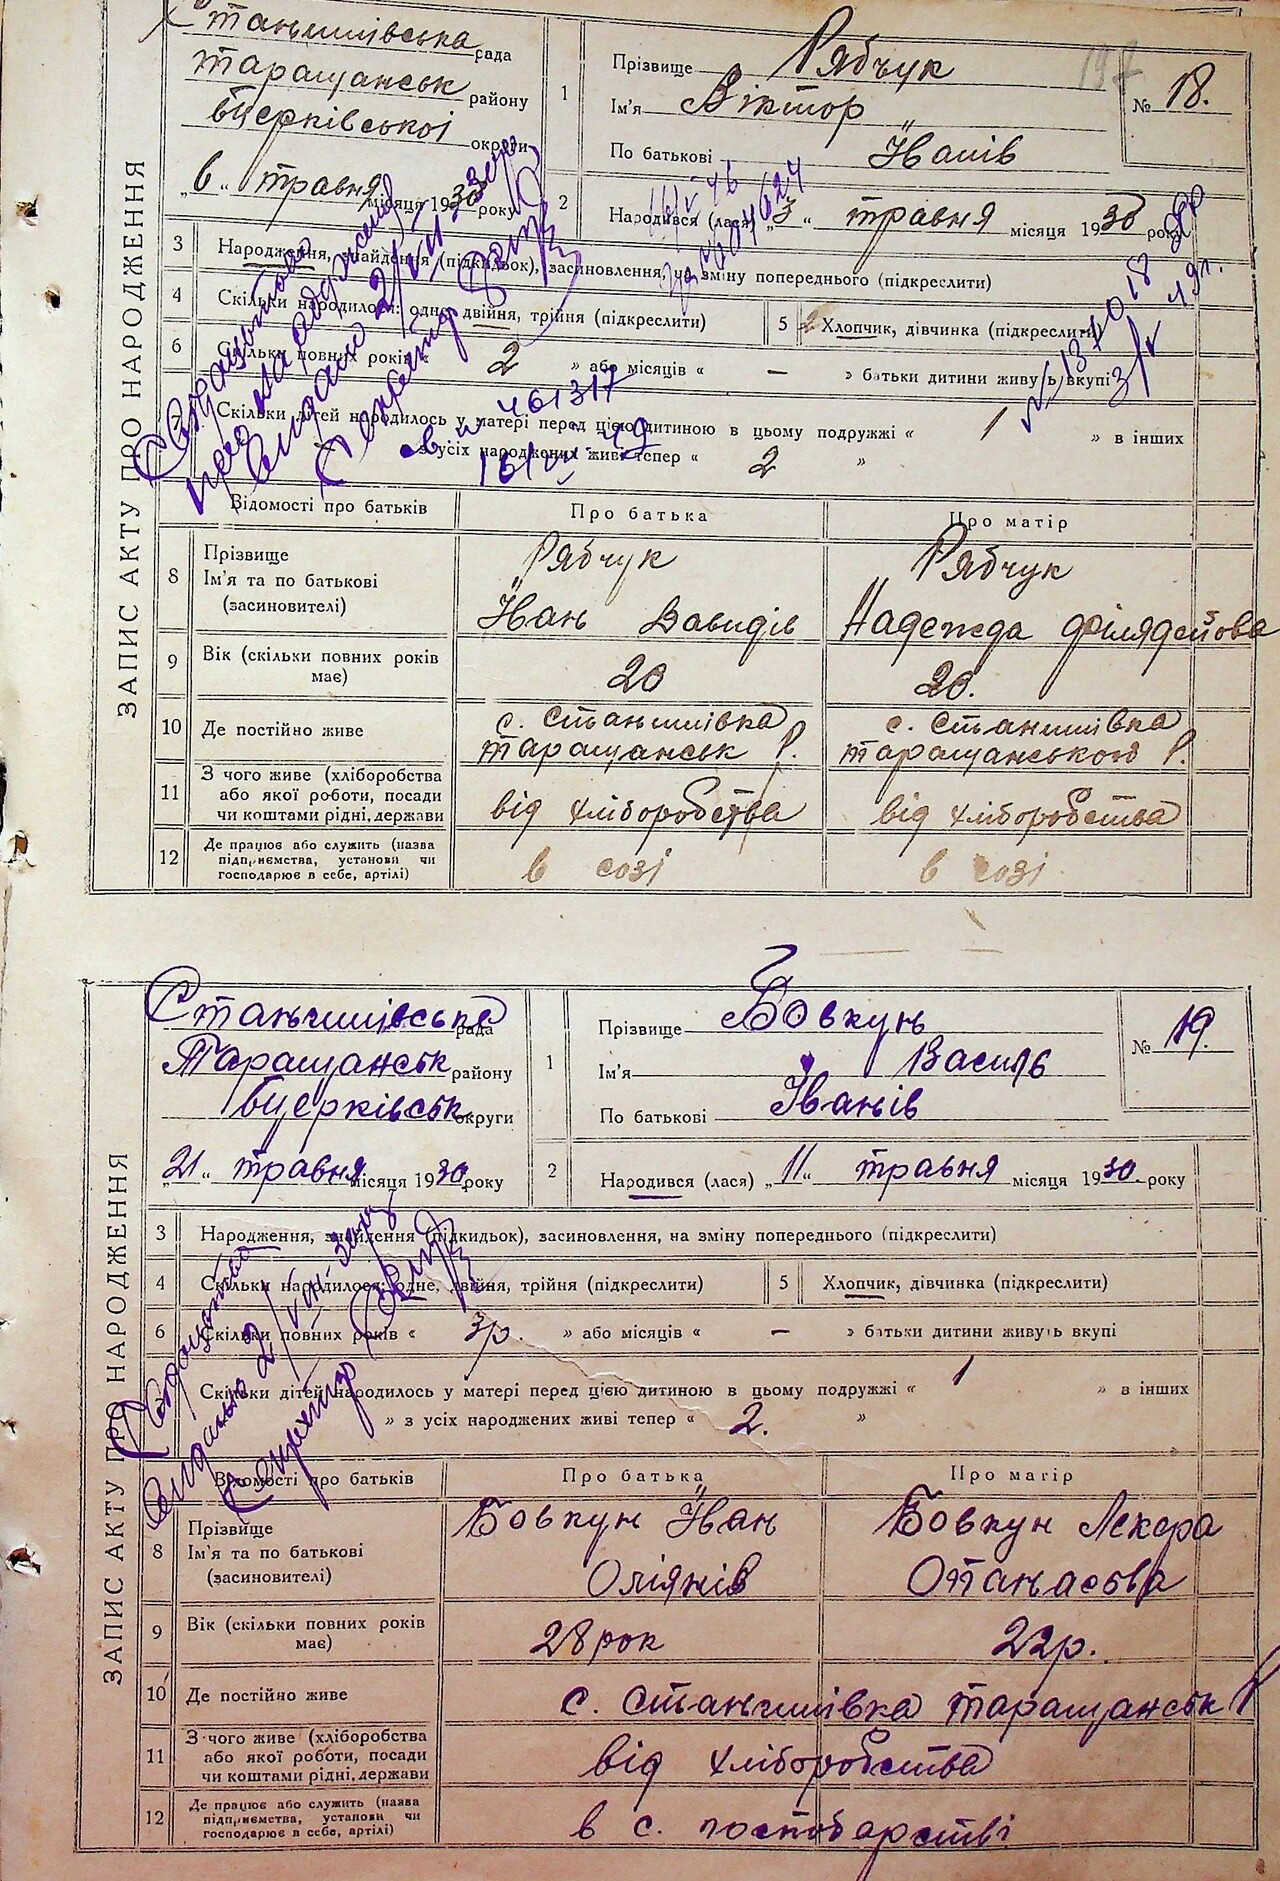 ЗАПИС АКТУ ПРО НАРОДЖЕННЯ
Станишівська рада
Таращанськ району
Бцерківської округи
„6“ травня місяця 1930 року
1
Прізвище Рябчук
Ім'я Віктор
По батькові Іванів
№ 18.
197
2
Народився (лася) „3“ травня місяця 1930 року
3 Народження, знайдення (підкидьок), засиновлення, на зміну попереднього (підкреслити)
4 Скільки народилося: одне, двійня, трійня (підкреслити)
5 Хлопчик, дівчинка (підкреслити)
6 Скільки повних років „ 2 » або місяців « — » батьки дитини живуть вкупі
Скільки дітей народилось у матері перед цією дитиною в цьому подружжі « 1 » в інших
з усіх народжених живі тепер « 2 »
видано 2/VII-30р
Секретар
461317
Відомості про батьків
Про батька
Про матір
8
Прізвище
Ім'я та по батькові
(засиновителі)
Рябчук
Іван Давидів
Рябчук
Надежда
9
Вік (скільки повних років має)
20
20.
10
Де постійно живе
с. Станишівка
Таращанськ Р.
с. Станишівка
Таращанського Р.
11
З чого живе (хліборобства
або якої роботи, посади
чи коштами рідні, держави
від хліборобства
від хліборобства
12
Де працює або служить (назва
підприємства, установи чи
господарює в себе, артілі)
в созі
в созі
ЗАПИС АКТУ ПРО НАРОДЖЕННЯ
Станишівська рада
Таращанськ району
Бцерківськ округи
„21“ травня місяця 1930 року
1
Прізвище Бовкун
Ім'я Василь
По батькові Іванів
№ 19.
2
Народився (лася) „11“ травня місяця 1930. року
3 Народження, знайдення (підкидьок), засиновлення, на зміну попереднього (підкреслити)
4 Скільки народилося: одне, двійня, трійня (підкреслити)
5 Хлопчик, дівчинка (підкреслити)
6 Скільки повних років « 3р. » або місяців « — » батьки дитини живуть вкупі
Скільки дітей народилось у матері перед цією дитиною в цьому подружжі « 1 » в інших
» з усіх народжених живі тепер « 2. »
видано 2/VII-30р
Секретар
Відомості про батьків
Про батька
Про матір
8
Прізвище
Ім'я та по батькові
(засиновителі)
Бовкун Іван
Оліянів
Бовкун Лєкєра
Опанасова
9
Вік (скільки повних років має)
28 рок
22р.
10
Де постійно живе
с. Станишівка Таращанськ Р
11
З чого живе (хліборобства
або якої роботи, посади
чи коштами рідні, держави
від хліборобства
12
Де працює або служить (назва
підприємства, установи чи
господарює в себе, артілі)
в с. господарстві